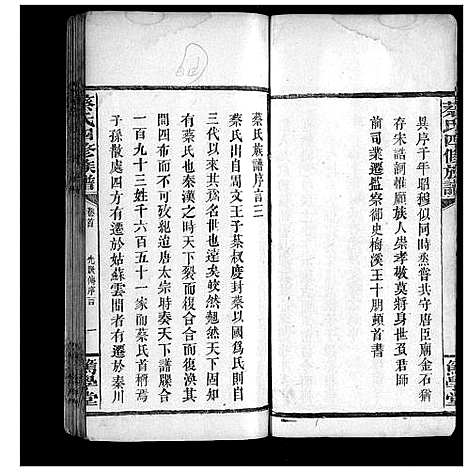 蔡氏四修族譜
具序于年昭穆似同時烝嘗共守唐臣廟金石猶
存宋誥詞惟願族人崇孝敬莫將身世負君師
前司業遷監察御史梅溪王十朋頓首書
篤學堂
蔡氏族譜序言二
蔡氏出自周文王子蔡叔度封蔡以國為氏則自
三代以來其為名世也遠矣較然翹然天下後世
有蔡氏也秦漢之時天下裂而復合合而復渙其
間四布而不可統唐太宗時奏天下譜牒合
一百九十三姓千六百五十一家而蔡氏首稱焉
子孫散處四方有遷於姑蘇雲間者有遷於秦川
蔡氏四修族譜
卷首
先世傳序言
一
篤學堂